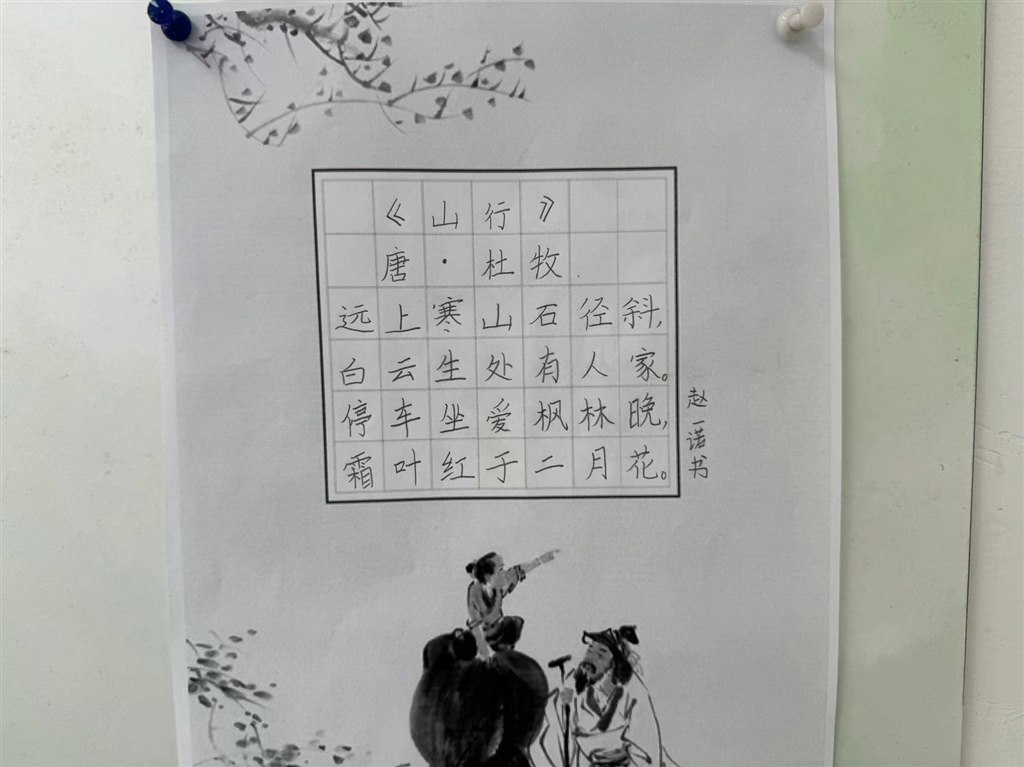 《山行》
唐·杜牧
远上寒山石径斜,
白云生处有人家。
停车坐爱枫林晚,
霜叶红于二月花。
赵一诺书